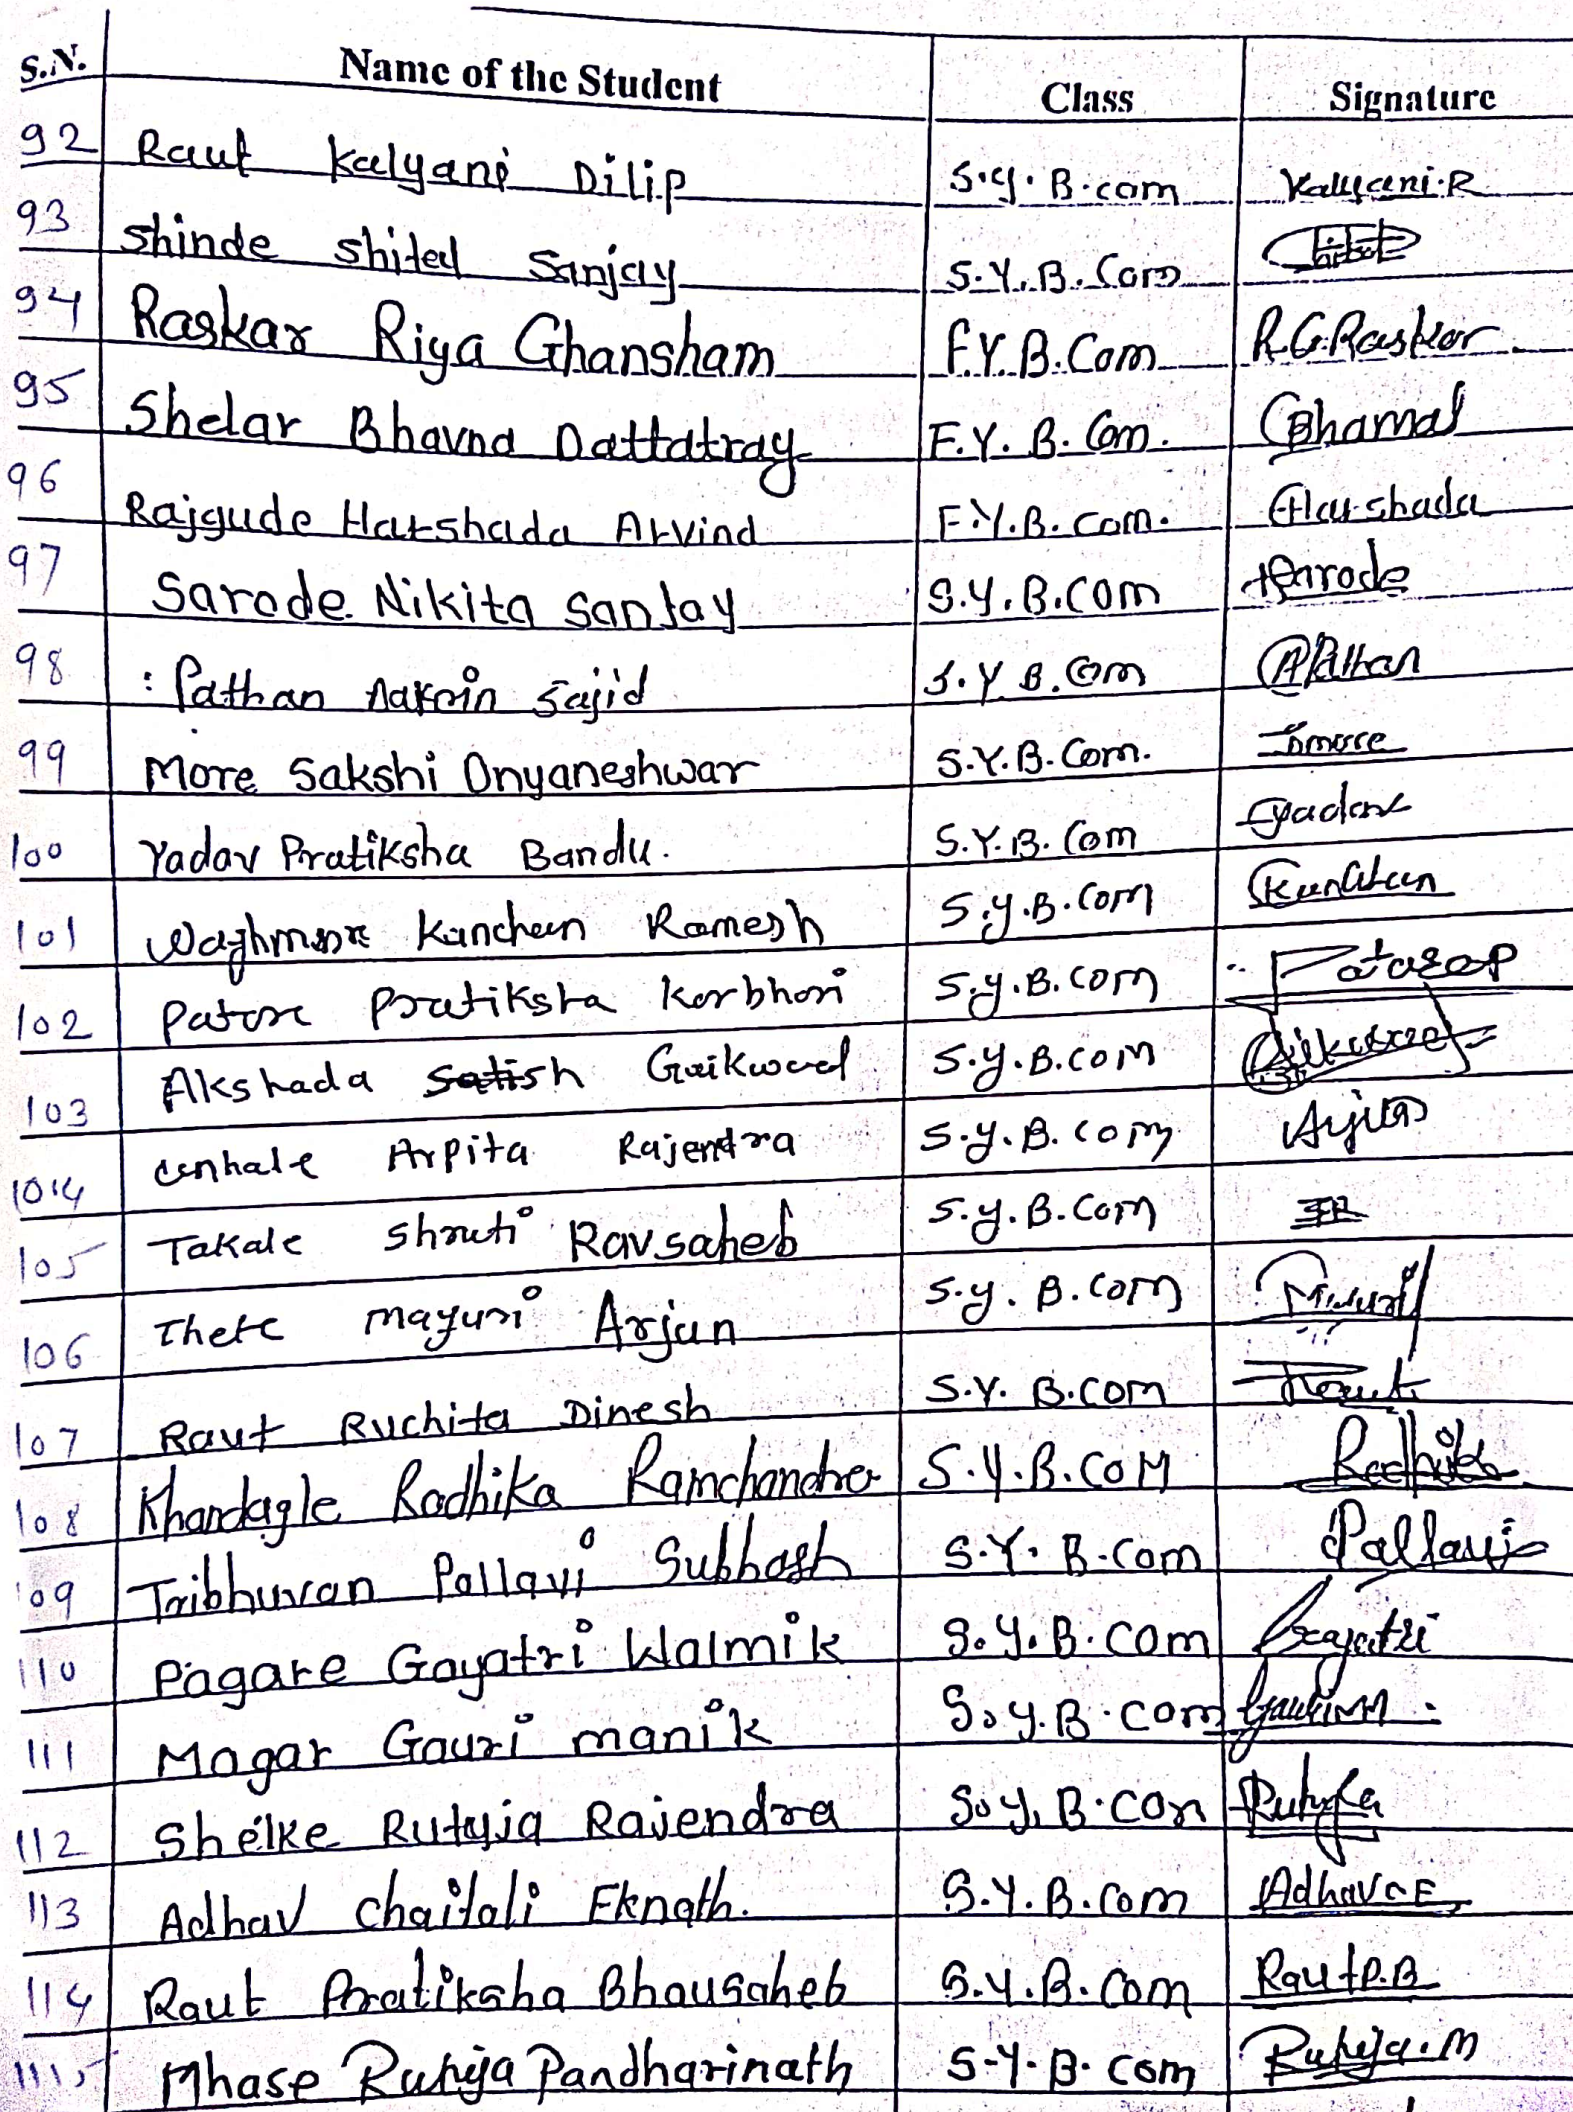 S.N. Name of the Student Class Signature
92 Raut Kalyani Dilip S.y. B.com Kalyani.R
93 Shinde Shital Sanjay S.Y.B.Com
94 Raskar Riya Ghansham F.Y.B.Com R.G.Raskar
95 Shelar Bhavna Dattatray F.Y.B.Com.
96 Rajgude Harshada Arvind F.Y.B.com. Harshada
97 Sarode Nikita Sanjay S.Y.B.COM
98 : Pathan Sajid S.Y B.Com APathan
99 More Sakshi Dnyaneshwar S.Y.B.Com. more
100 Yadav Pratiksha Bandu. S.Y.B.Com yadav
101 Waghmare Kanchan Ramesh S.y.B.Com Kanchan
102 Patare Pratiksha Karbhari S.y.B.Com
103 Akshada Satish Gaikwad S.y.B.Com
104 Arpita Rajendra S.y.B.Com
105 Takale Shruti Ravsaheb S.y.B.Com
106 Thete mayuri Arjun S.y. B.Com Mayuri
107 Raut Ruchita Dinesh S.Y. B.COM Raut
108 Khandagle Radhika Ramchandra S.Y.B.COM Radhika
109 Tribhuvan Pallavi Subhash S.Y. B.Com Pallavi
110 Pagare Gayatri Walmik S.Y.B.Com Gayatri
111 Magar Gauri manik S.Y.B.Com
112 Shelke Rutuja Rajendra S.Y.B.Com Rutuja
113 Adhav Chaitali Eknath. S.Y.B.Com Adhav C E
114 Raut Pratiksha Bhausaheb S.Y.B.Com Raut P.B
115 Mhase Rutuja Pandharinath S-Y-B.Com Rutuja.M